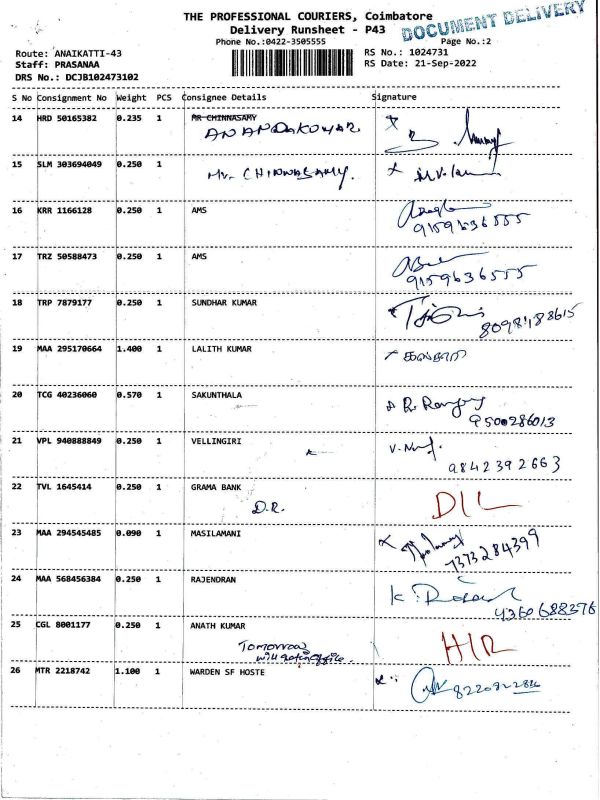 DOCUMENT DELIVERY
THE PROFESSIONAL COURIERS, Coimbatore
Delivery Runsheet - P43
Phone No.:0422-3505555 Page No.:2
Route: ANAIKATTI-43 RS No.: 1024731
Staff: PRASANAA RS Date: 21-Sep-2022
DRS No.: DCJB102473102
S No Consignment No Weight PCS Consignee Details Signature
14 HRD 50165382 0.235 1 MR CHINNASAMY
ANANDAKUMAR.
15 SLM 303694049 0.250 1
Mr. CHINNASAMY.
16 KRR 1166128 0.250 1 AMS
9159636555
17 TRZ 50588473 0.250 1 AMS
9159636555
18 TRP 7879177 0.250 1 SUNDHAR KUMAR
8098488615
19 MAA 295170664 1.400 1 LALITH KUMAR
20 TCG 40236060 0.570 1 SAKUNTHALA
9500286013
21 VPL 940888849 0.250 1 VELLINGIRI
9842392663
22 TVL 1645414 0.250 1 GRAMA BANK
D.R. D/L
23 MAA 294545485 0.090 1 MASILAMANI
7373284399
24 MAA 568456384 0.250 1 RAJENDRAN
25 CGL 8001177 0.250 1 ANATH KUMAR
Tomorrow H/R
26 MTR 2218742 1.100 1 WARDEN SF HOSTE